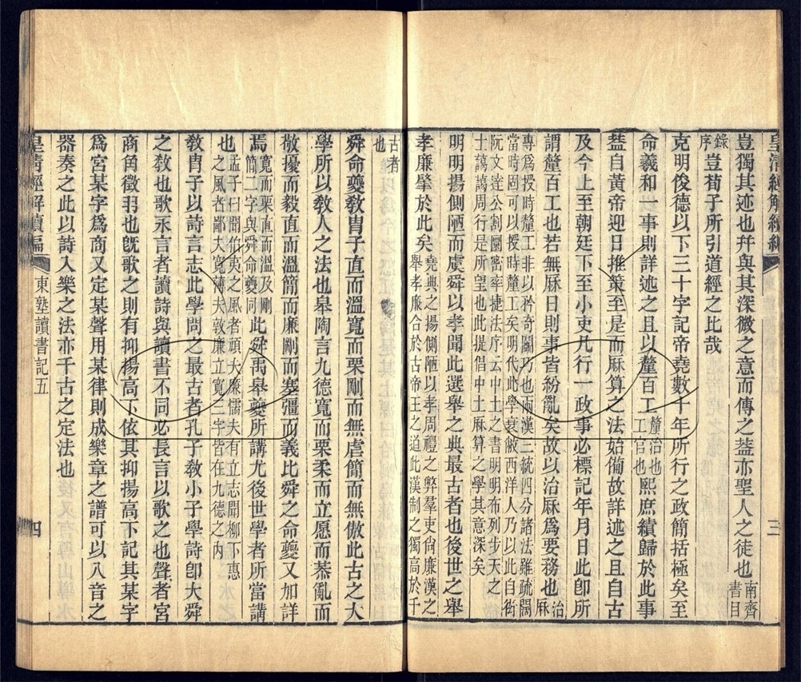 皇清經解續編
三
豈獨其迹也幷與其深微之意而傳之葢亦聖人之徒也南齊書目
錄序豈荀子所引道經之比哉
克明俊德以下三十字記帝堯數十年所行之政簡括極矣至
命羲和一事則詳述之且以釐百工釐治也工官也熙庶績歸於此事
葢自黃帝迎日推策至是而厤算之法始備故詳述之且自古
及今上至朝廷下至小吏凡行一政事必標記年月日此卽所
謂釐百工也若無厤日則事皆紛亂矣故以治厤爲要務也治厤
專爲授時釐工非以矜奇鬭巧也兩漢三統四分諸法雖疏闊
當時固可以授時釐工矣明代此學衰歇西洋人乃以此自衒
阮文達公割圜密率捷法序云中土之書明明布列步天之
士萬萬周行是所望也此提倡中土厤算之學其意深矣
明明揚側陋而虞舜以孝聞此選舉之典最古者也後世之舉
孝廉肇於此矣堯典之揚側陋以孝周禮之弊羣吏尙廉漢之
舉孝廉合於古帝王之道此漢制之獨高於千
古者也
舜命夔敎胄子直而溫寬而栗剛而無虐簡而無傲此古之大
學所以敎人之法也皋陶言九德寬而栗柔而立愿而恭亂而
敬擾而毅直而溫簡而廉剛而塞彊而義比舜之命夔又加詳
焉寬而栗直而溫及剛簡二字與舜命夔同此疑禹皋夔所講尤後世學者所當講
也孟子曰聞伯夷之風者頑夫廉懦夫有立志聞柳下惠
之風者鄙夫寬薄夫敦廉立寬三字皆在九德之內
敎胄子以詩言志此學問之最古者孔子敎小子學詩卽大舜
之敎也歌永言者讀詩與讀書不同必長言以歌之也聲者宮
商角徵羽也旣歌之則有抑揚高下依其抑揚高下記其某字
爲宮某字爲商又定某聲用某律則成樂章之譜可以八音之
器奏之此以詩入樂之法亦千古之定法也
皇清經解續編
東塾讀書記五
四